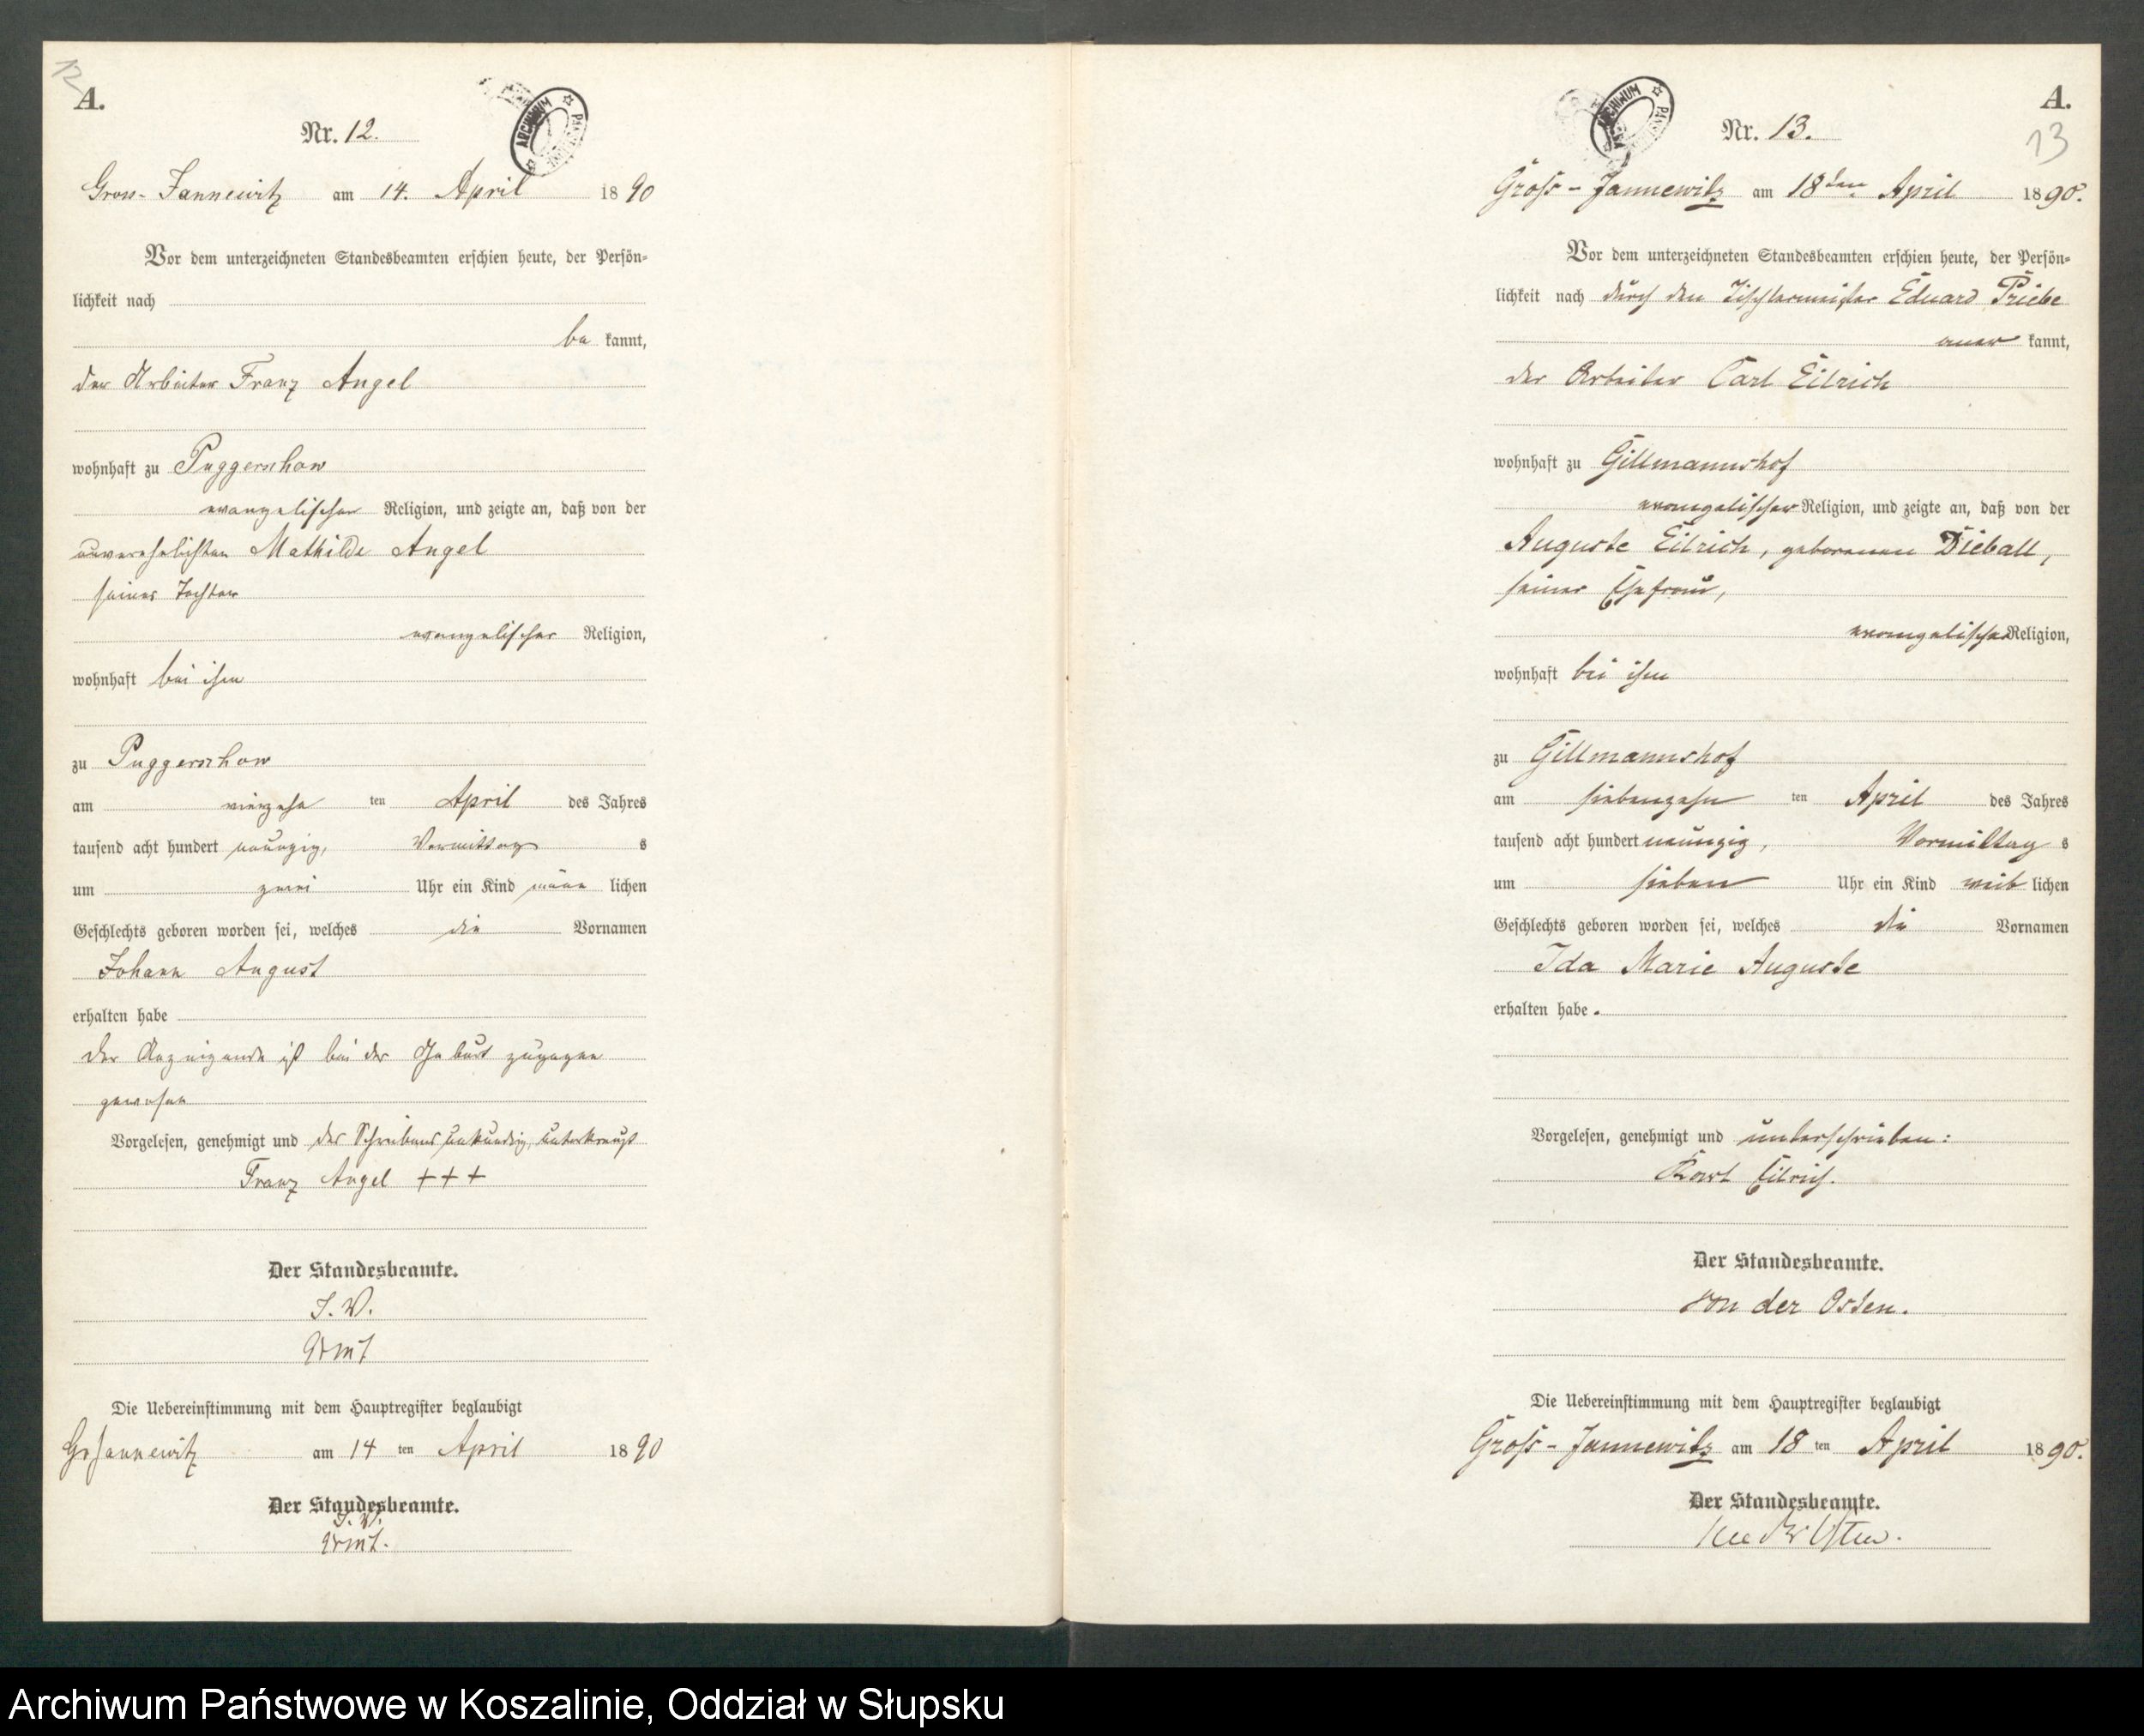 12
A.
Nr. 12.
ARCHIWUM
Gross-Jannewitz am 14. April 1890
Vor dem unterzeichneten Standesbeamten erschien heute, der Persön-
lichkeit nach
be kannt,
der Arbeiter Franz Angel
wohnhaft zu Puggerschow
evangelischer Religion, und zeigte an, daß von der
unverehelichten Mathilde Angel
seiner Tochter
evangelischer Religion,
wohnhaft bei ihm
zu Puggerschow
am vierzehn ten April des Jahres
tausend acht hundert neunzig, Vormittag s
um zwei Uhr ein Kind männ lichen
Geschlechts geboren worden sei, welches die Vornamen
Johann August
erhalten habe
Der Anzeigende ist bei der Geburt zugegen
gewesen
Vorgelesen, genehmigt und der Schreibens unkundig, unterkreuzt
Franz Angel +++
Der Standesbeamte.
I. V.
Die Uebereinstimmung mit dem Hauptregister beglaubigt
Gr Jannewitz am 14 ten April 1890
Der Standesbeamte.
I. V.
A.
13
Nr. 13.
ARCHIWUM
Groß-Jannewitz am 18ten April 1890.
Vor dem unterzeichneten Standesbeamten erschien heute, der Persön-
lichkeit nach durch den Tischlermeister Eduard Priebe
aner kannt,
der Arbeiter Carl Eilrich
wohnhaft zu Gillmannshof
evangelischer Religion, und zeigte an, daß von der
Auguste Eilrich, geborenen Dieball,
seiner Ehefrau,
evangelischer Religion,
wohnhaft bei ihm
zu Gillmannshof
am siebenzehn ten April des Jahres
tausend acht hundert neunzig, Vormittag s
um sieben Uhr ein Kind weib lichen
Geschlechts geboren worden sei, welches die Vornamen
Ida Marie Auguste
erhalten habe.
Vorgelesen, genehmigt und unterschrieben:
Karl Eilrich.
Der Standesbeamte.
von der Osten.
Die Uebereinstimmung mit dem Hauptregister beglaubigt
Groß-Jannewitz am 18 ten April 1890.
Der Standesbeamte.
von der Osten.
Archiwum Państwowe w Koszalinie, Oddział w Słupsku